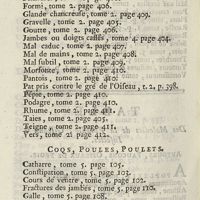 Formi, tome 2. page 406.
Glande chancreuse, tome 2. page 409.
Gravelle, tome 2. page 405.
Goutte, tome 2. page 406.
Jambes ou doigts cassés, tome 4. page 404.
Mal caduc, tome 2. page 407.
Mal de mains, tome 2. page 408.
Mal subtil, tome 2. page 409.
Morfonture, tome 2. page 410.
Pantois, tome 2. page 410.
Pat pris contre le gré de l'Oiseau, t. 2. p. 398.
Pépie, tome 2. page 410.
Podagre, tome 2. page 410.
Rhume, tome 2. page 411.
Taies, tome 2. page 405.
Teigne, tome 2. page 411.
Vers, tome 2. page 412.
COQS, POULES, POULETS.
Catharre, tome 5. page 105.
Constipation, tome 5. page 103.
Cours de ventre, tome 5. page 102.
Fractures des jambes, tome 5. page 110.
Galle, tome 5. page 108.